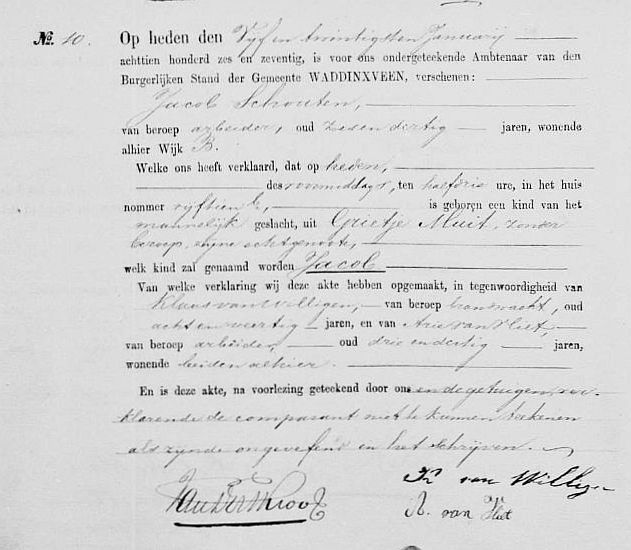 №. 10. Op heden den Vijf en twintigsten Januarij
achttien honderd zes en zeventig, is voor ons ondergeteekende Ambtenaar van den
Burgerlijken Stand der Gemeente WADDINXVEEN, verschenen:
Jacob Schouten,
van beroep arbeider, oud zes en dertig jaren, wonende
alhier Wijk B.
Welke ons heeft verklaard, dat op heden,
des voormiddags, ten half drie ure, in het huis
nommer vijftien is geboren een kind van het
mannelijk geslacht, uit Grietje Muit, zonder
beroep, zijne echtgenoote,
welk kind zal genaamd worden Jacob
Van welke verklaring wij deze akte hebben opgemaakt, in tegenwoordigheid van
Klaas van Willigen, van beroep oud
acht en veertig jaren, en van Arie van Vliet,
van beroep arbeider, oud drie en dertig jaren,
wonende beiden alhier.
En is deze akte, na voorlezing geteekend door ons en de getuigen, ver-
klarende de comparant niet te kunnen teekenen
als zijnde ongeoefend in het schrijven.
van Willigen
A. van Vliet